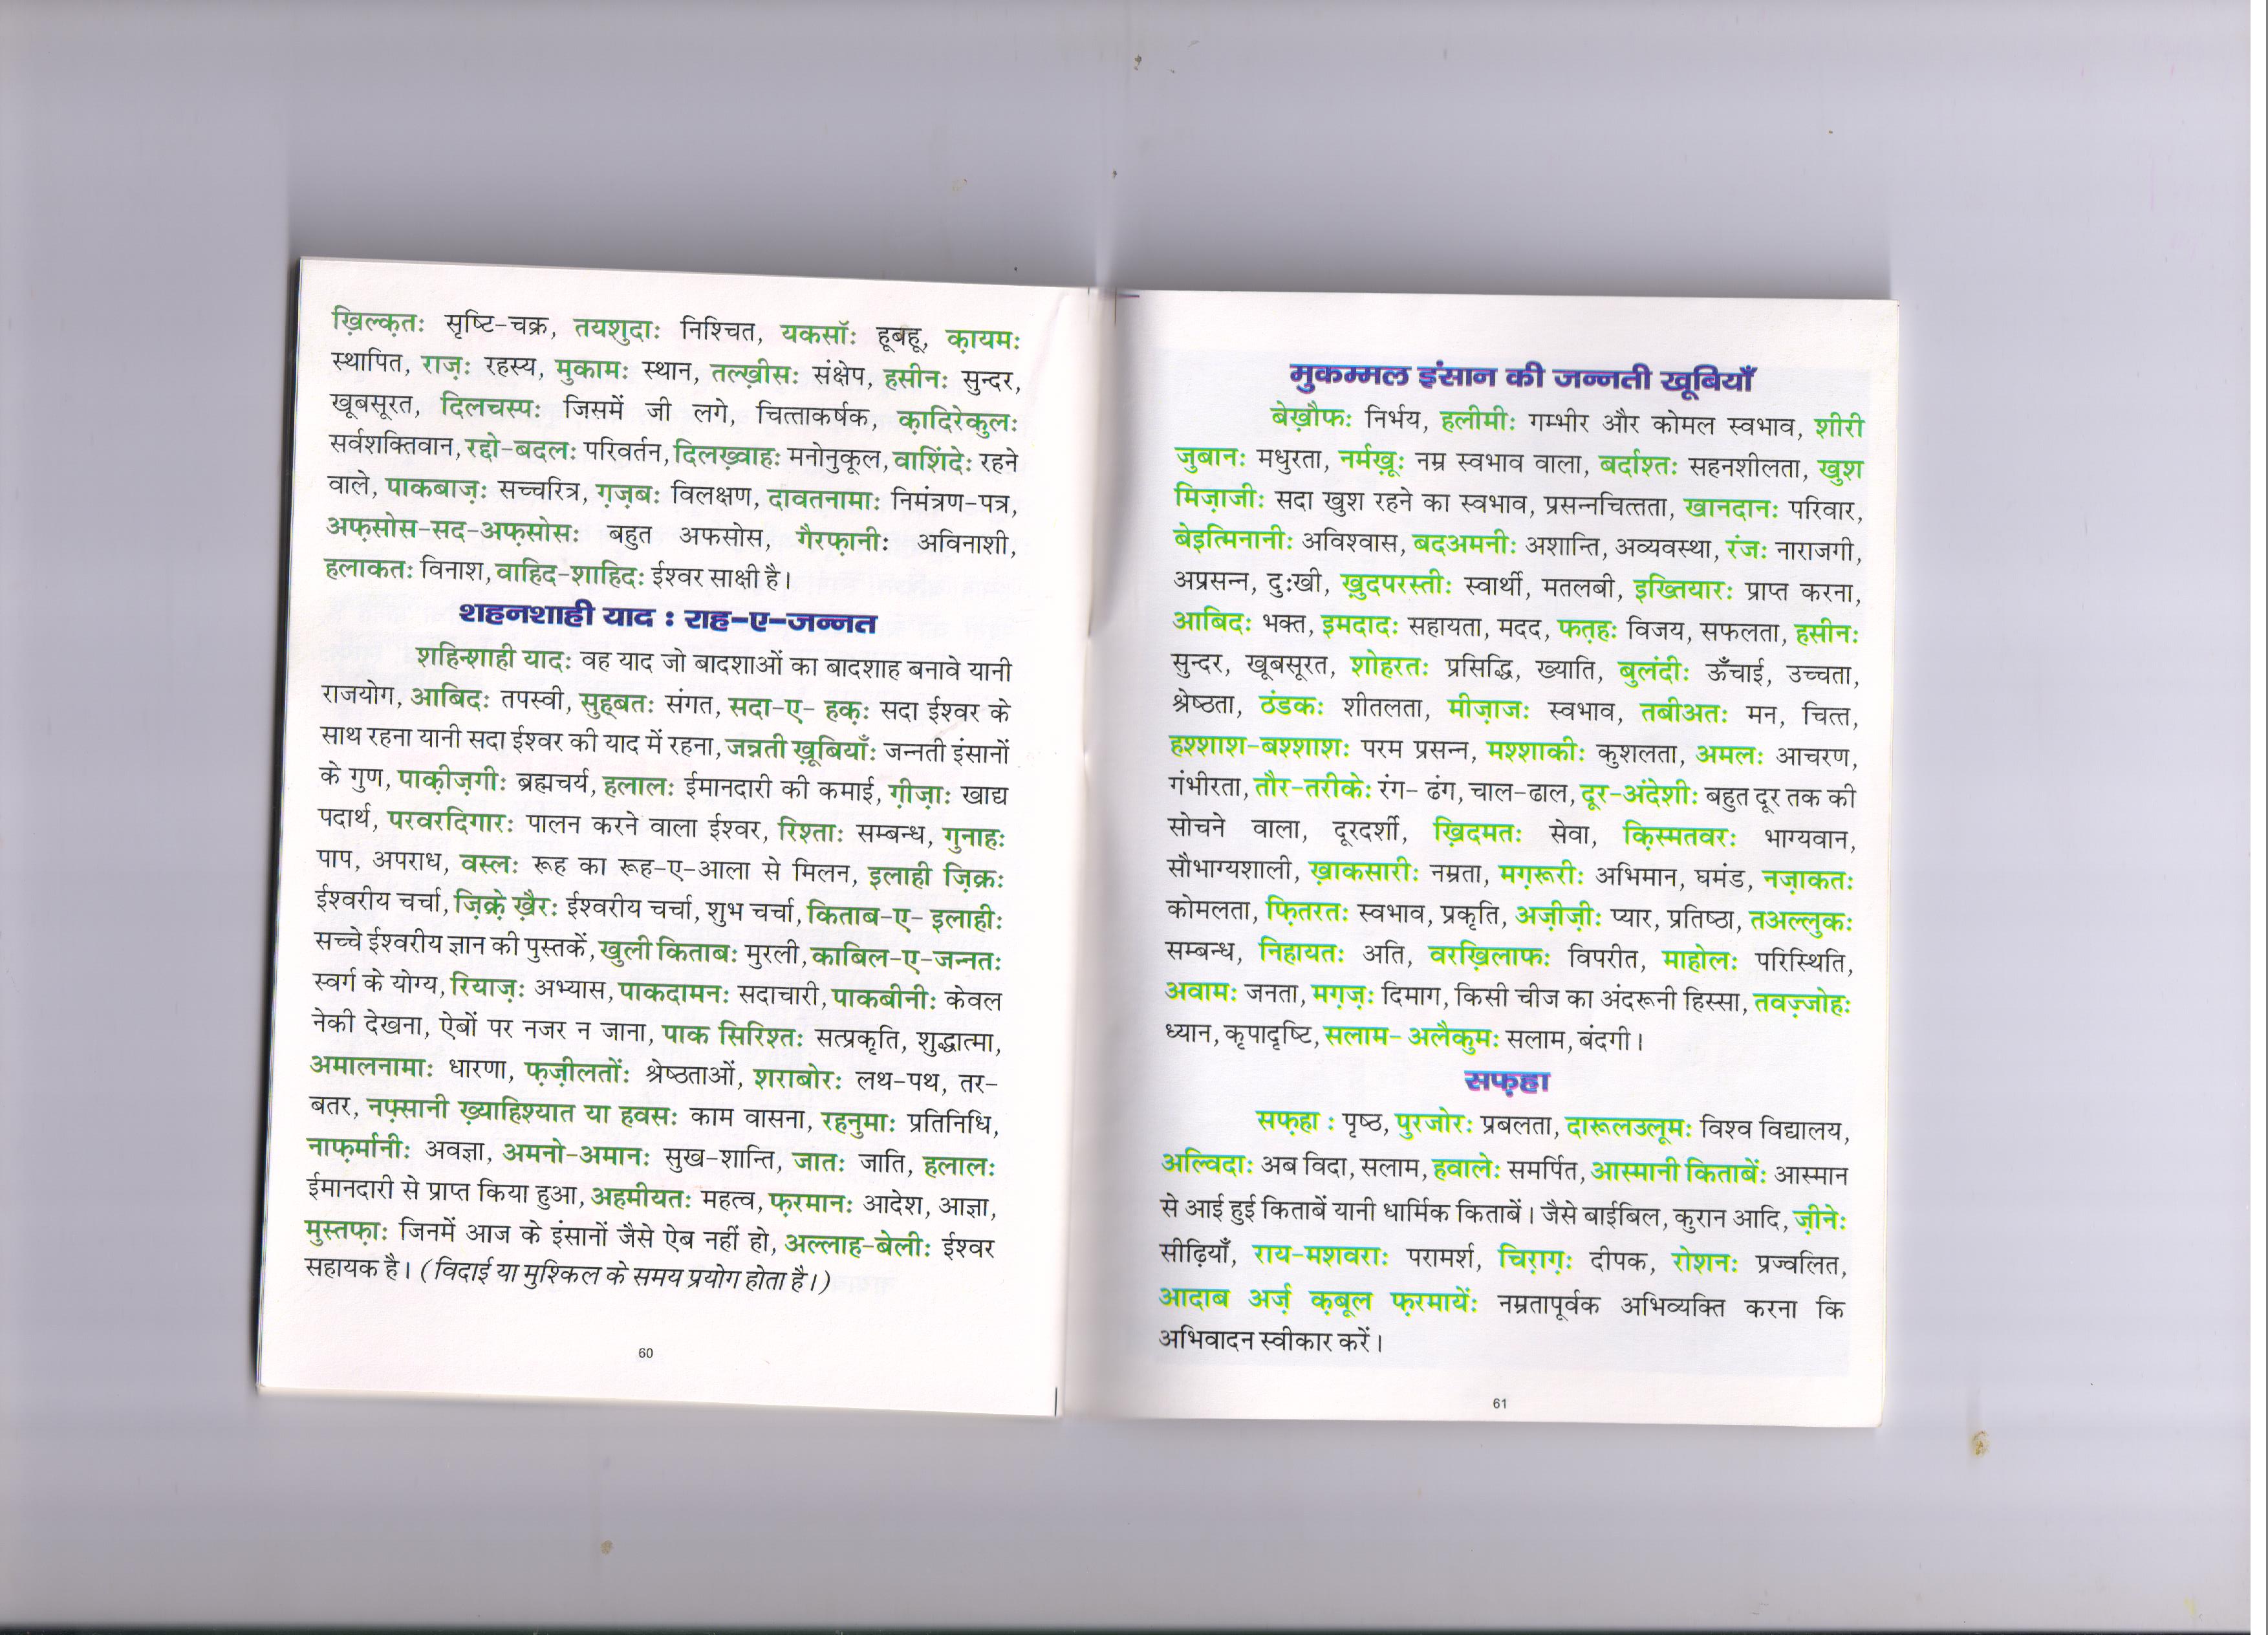 ख़िल्क़तः सृष्टि-चक्र, तयशुदाः निश्चित, यकसाॅः हूबहू, क़ायमः
स्थापित, राज़ः रहस्य, मुकामः स्थान, तल्ख़ीसः संक्षेप, हसीनः सुन्दर,
खूबसूरत, दिलचस्पः जिसमें जी लगे, चित्ताकर्षक, क़ादिरेकुलः
सर्वशक्तिवान, रद्दो-बदलः परिवर्तन, दिलख़्वाहः मनोनुकूल, वाशिंदेः रहने
वाले, पाकबाज़ः सच्चरित्र, ग़ज़बः विलक्षण, दावतनामाः निमंत्रण-पत्र,
अफ़सोस-सद-अफ़सोसः बहुत अफसोस, गैरफ़ानीः अविनाशी,
हलाकतः विनाश, वाहिद-शाहिदः ईश्वर साक्षी है।
शहनशाही याद : राह-ए-जन्नत
शहिन्शाही यादः वह याद जो बादशाओं का बादशाह बनावे यानी
राजयोग, आबिदः तपस्वी, सुह्बतः संगत, सदा-ए- हक़ः सदा ईश्वर के
साथ रहना यानी सदा ईश्वर की याद में रहना, जन्नती ख़ूबियाँः जन्नती इंसानों
के गुण, पाक़ीज़गीः ब्रह्मचर्य, हलालः ईमानदारी की कमाई, ग़ीज़ाः खाद्य
पदार्थ, परवरदिगारः पालन करने वाला ईश्वर, रिश्ताः सम्बन्ध, गुनाहः
पाप, अपराध, वस्लः रूह का रूह-ए-आला से मिलन, इलाही ज़िक्रः
ईश्वरीय चर्चा, ज़िक्रे़ ख़ैरः ईश्वरीय चर्चा, शुभ चर्चा, किताब-ए- इलाहीः
सच्चे ईश्वरीय ज्ञान की पुस्तकें, खुली किताबः मुरली, काबिल-ए-जन्नतः
स्वर्ग के योग्य, रियाज़ः अभ्यास, पाकदामनः सदाचारी, पाकबीनीः केवल
नेकी देखना, ऐबों पर नजर न जाना, पाक सिरिश्तः सत्प्रकृति, शुद्धात्मा,
अमालनामाः धारणा, फ़ज़ीलतोंः श्रेष्ठताओं, शराबोरः लथ-पथ, तर-
बतर, नफ़्सानी ख़्याहिश्यात या हवसः काम वासना, रहनुमाः प्रतिनिधि,
नाफ़र्मानीः अवज्ञा, अमनो-अमानः सुख-शान्ति, जातः जाति, हलालः
ईमानदारी से प्राप्त किया हुआ, अहमीयतः महत्व, फ़रमानः आदेश, आज्ञा,
मुस्तफ़ाः जिनमें आज के इंसानों जैसे ऐब नहीं हो, अल्लाह-बेलीः ईश्वर
सहायक है। (विदाई या मुश्किल के समय प्रयोग होता है।)
60
मुकम्मल इंसान की जन्नती खूबियाँ
बेख़ौफः निर्भय, हलीमीः गम्भीर और कोमल स्वभाव, शीरी
जुबानः मधुरता, नर्मख़ूः नम्र स्वभाव वाला, बर्दाश्तः सहनशीलता, खुश
मिज़ाजीः सदा खुश रहने का स्वभाव, प्रसन्नचित्तता, खानदानः परिवार,
बेइत्मिनानीः अविश्वास, बदअमनीः अशान्ति, अव्यवस्था, रंजः नाराजगी,
अप्रसन्न, दुःखी, ख़ुदपरस्तीः स्वार्थी, मतलबी, इख्तियारः प्राप्त करना,
आबिदः भक्त, इमदादः सहायता, मदद, फत़हः विजय, सफलता, हसीनः
सुन्दर, खूबसूरत, शोहरतः प्रसिद्धि, ख्याति, बुलंदीः ऊँचाई, उच्चता,
श्रेष्ठता, ठंडकः शीतलता, मीज़ाजः स्वभाव, तबीअतः मन, चित्त,
हश्शाश-बश्शाशः परम प्रसन्न, मश्शाकीः कुशलता, अमलः आचरण,
गंभीरता, तौर-तरीकेः रंग- ढंग, चाल-ढाल, दूर-अंदेशीः बहुत दूर तक की
सोचने वाला, दूरदर्शी, ख़िदमतः सेवा, क़िस्मतवरः भाग्यवान,
सौभाग्यशाली, ख़ाकसारीः नम्रता, मग़रूरीः अभिमान, घमंड, नज़ाकतः
कोमलता, फ़ितरतः स्वभाव, प्रकृति, अज़ीज़ीः प्यार, प्रतिष्ठा, तअल्लुकः
सम्बन्ध, निहायतः अति, वरख़िलाफः विपरीत, माहोलः परिस्थिति,
अवामः जनता, मग़ज़ः दिमाग, किसी चीज का अंदरूनी हिस्सा, तवज़्जोहः
ध्यान, कृपादृष्टि, सलाम- अलैकुमः सलाम, बंदगी।
सफ़्हा
सफ़्हा : पृष्ठ, पुरजोरः प्रबलता, दारूलउलूमः विश्व विद्यालय,
अल्विदाः अब विदा, सलाम, हवालेः समर्पित, आस्मानी किताबेंः आस्मान
से आई हुई किताबें यानी धार्मिक किताबें। जैसे बाईबिल, कुरान आदि, ज़ीनेः
सीढ़ियाँ, राय-मशवराः परामर्श, चिराग़ः दीपक, रोशनः प्रज्वलित,
आदाब अर्ज़ क़बूल फ़रमायेंः नम्रतापूर्वक अभिव्यक्ति करना कि
अभिवादन स्वीकार करें।
61